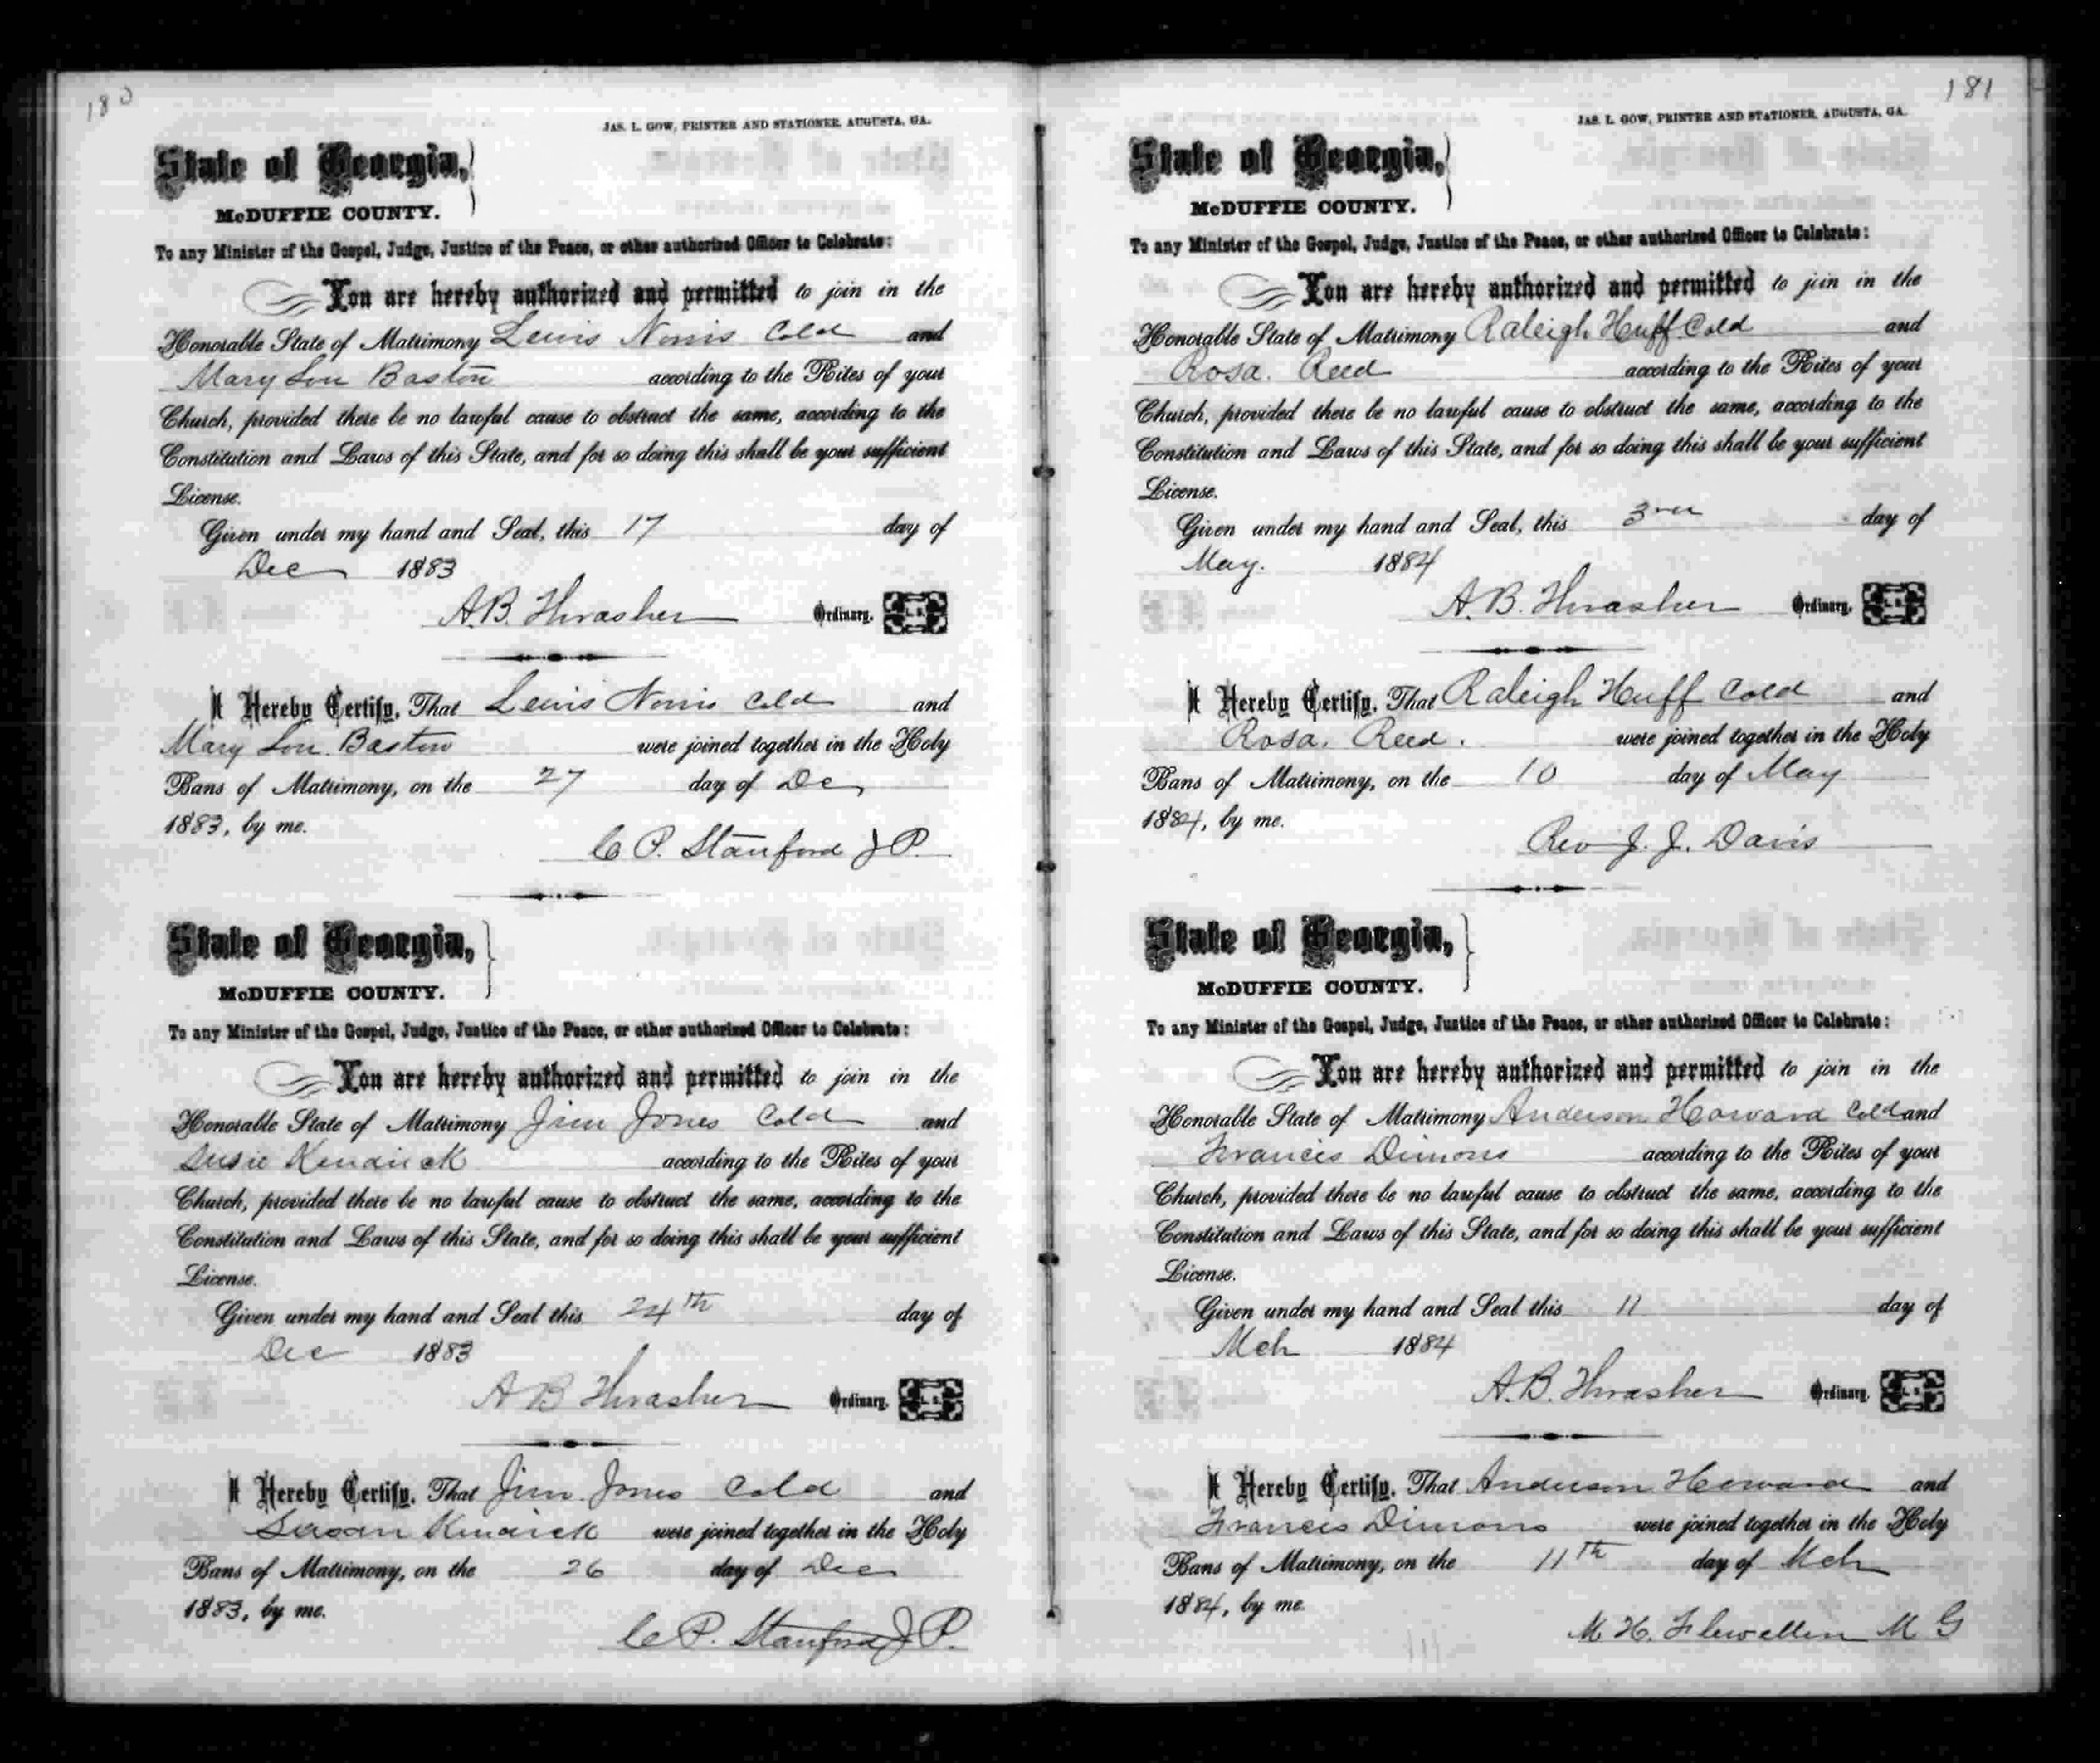 180
JAS. L. GOW, PRINTER AND STATIONER, AUGUSTA, GA.
State of Georgia,
McDUFFIE COUNTY.
To any Minister of the Gospel, Judge, Justice of the Peace, or other authorized Officer to Celebrate:
You are hereby authorized and permitted to join in the
Honorable State of Matrimony Lewis Norris Cold and
Mary Lou Baston according to the Rites of your
Church, provided there be no lawful cause to obstruct the same, according to the
Constitution and Laws of this State, and for so doing this shall be your sufficient
License.
Given under my hand and Seal, this 17 day of
Dec 1883
A.B. Thrasher Ordinary. L.S.
I Hereby Certify, That Lewis Norris Cold and
Mary Lou Baston were joined together in the Holy
Bans of Matrimony, on the 27 day of Dec
1883, by me.
C P. Stanford J P.
State of Georgia,
McDUFFIE COUNTY.
To any Minister of the Gospel, Judge, Justice of the Peace, or other authorized Officer to Celebrate:
You are hereby authorized and permitted to join in the
Honorable State of Matrimony Jim Jones Cold and
Susie Kendrick according to the Rites of your
Church, provided there be no lawful cause to obstruct the same, according to the
Constitution and Laws of this State, and for so doing this shall be your sufficient
License.
Given under my hand and Seal this 24th day of
Dec 1883
A B Thrasher Ordinary. L.S.
I Hereby Certify, That Jim Jones Cold and
Susan Kendrick were joined together in the Holy
Bans of Matrimony, on the 26 day of Dec
1883, by me.
C P. Stanford J P.
181
JAS. L. GOW, PRINTER AND STATIONER, AUGUSTA, GA.
State of Georgia,
McDUFFIE COUNTY.
To any Minister of the Gospel, Judge, Justice of the Peace, or other authorized Officer to Celebrate:
You are hereby authorized and permitted to join in the
Honorable State of Matrimony Raleigh Huff Cold and
Rosa. Reed according to the Rites of your
Church, provided there be no lawful cause to obstruct the same, according to the
Constitution and Laws of this State, and for so doing this shall be your sufficient
License.
Given under my hand and Seal, this 3 day of
May. 1884
A.B. Thrasher Ordinary. L.S.
I Hereby Certify, That Raleigh Huff Cold and
Rosa. Reed. were joined together in the Holy
Bans of Matrimony, on the 10 day of May
1884, by me.
Rev J. J. Davis
State of Georgia,
McDUFFIE COUNTY.
To any Minister of the Gospel, Judge, Justice of the Peace, or other authorized Officer to Celebrate:
You are hereby authorized and permitted to join in the
Honorable State of Matrimony Anderson Howard Cold and
Francis Dimons according to the Rites of your
Church, provided there be no lawful cause to obstruct the same, according to the
Constitution and Laws of this State, and for so doing this shall be your sufficient
License.
Given under my hand and Seal this 11 day of
Mch 1884
A.B. Thrasher Ordinary. L.S.
I Hereby Certify, That Anderson Howard and
Francis Dimons were joined together in the Holy
Bans of Matrimony, on the 11th day of Mch
1884, by me.
M. H. Flewellen M G